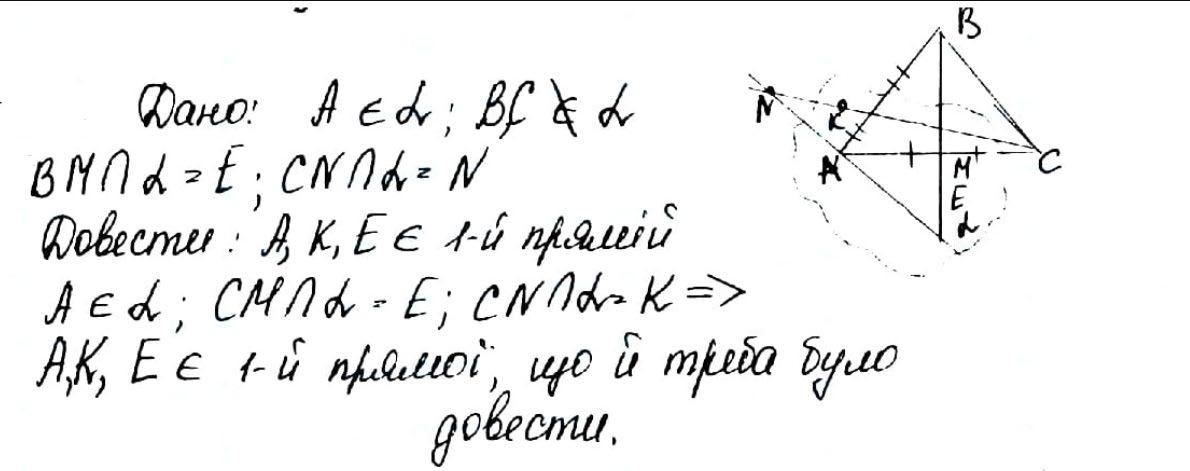 Дано: A ∈ α; B,C ∉ α
BM ∩ α = E; CN ∩ α = N
Довести: A, K, E ∈ 1-й прямій
A ∈ α; CM ∩ α = E; CN ∩ α = K =>
A,K, E ∈ 1-й прямої, що й треба було
довести.
B
N
K
A
M
C
E
α